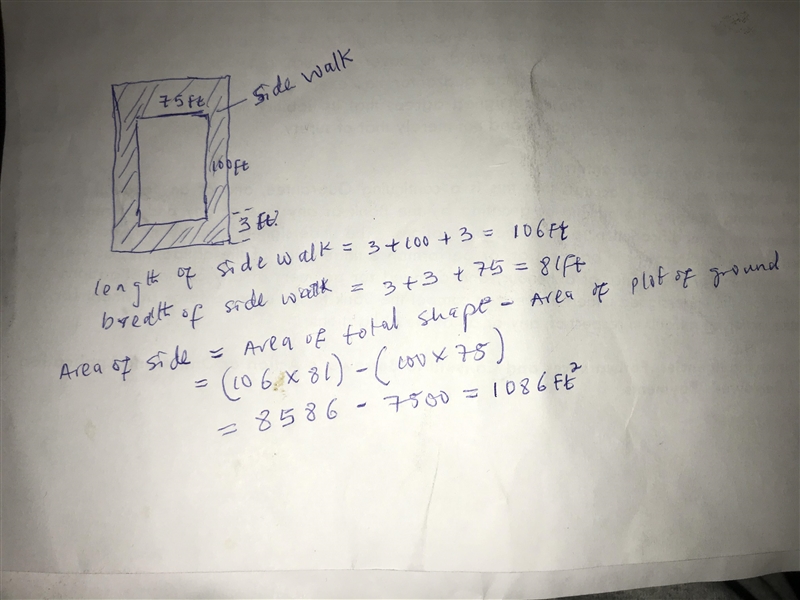 75ft
side walk
100ft
3 ft.
length of side walk = 3+100+3 = 106ft
breadth of side walk = 3+3+75 = 81ft
Area of side = Area of total shape - Area of plot of ground
= (106 × 81) - (100×75)
= 8586 - 7500 = 1086ft²